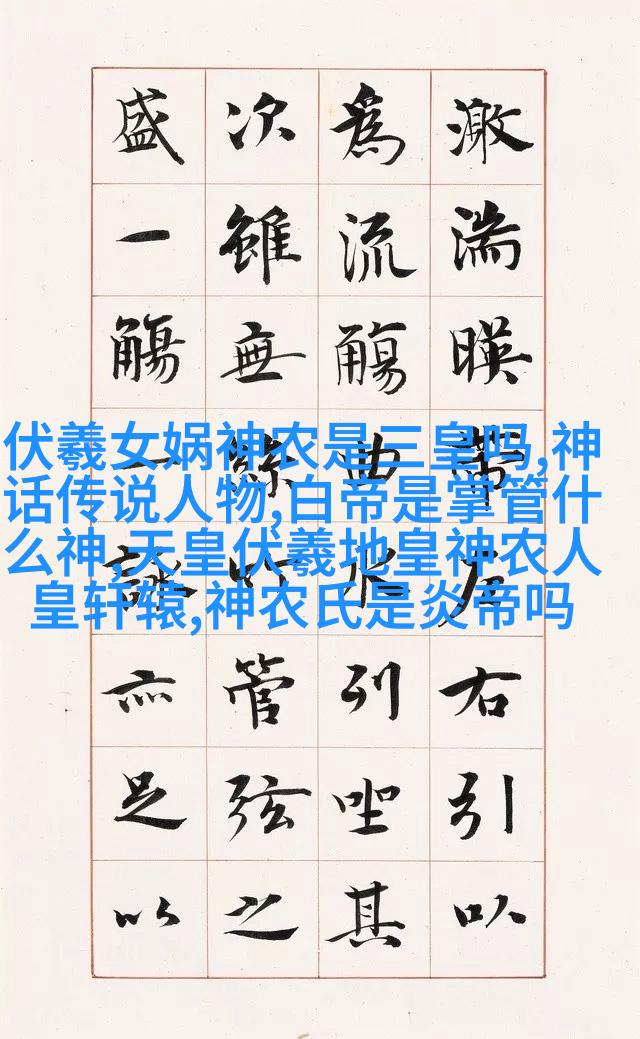 激湍暎帶左右引以
為流觴曲水列坐其
次雖無絲竹管弦之
盛一觴一詠亦足以
伏羲女娲神农是三皇吗,神
话传说人物,白帝是掌管什
么神,天皇伏羲地皇神农人
皇轩辕,神农氏是炎帝吗